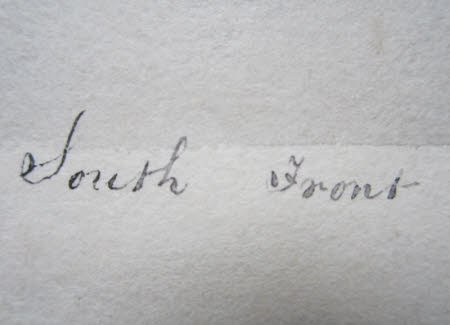 South Front